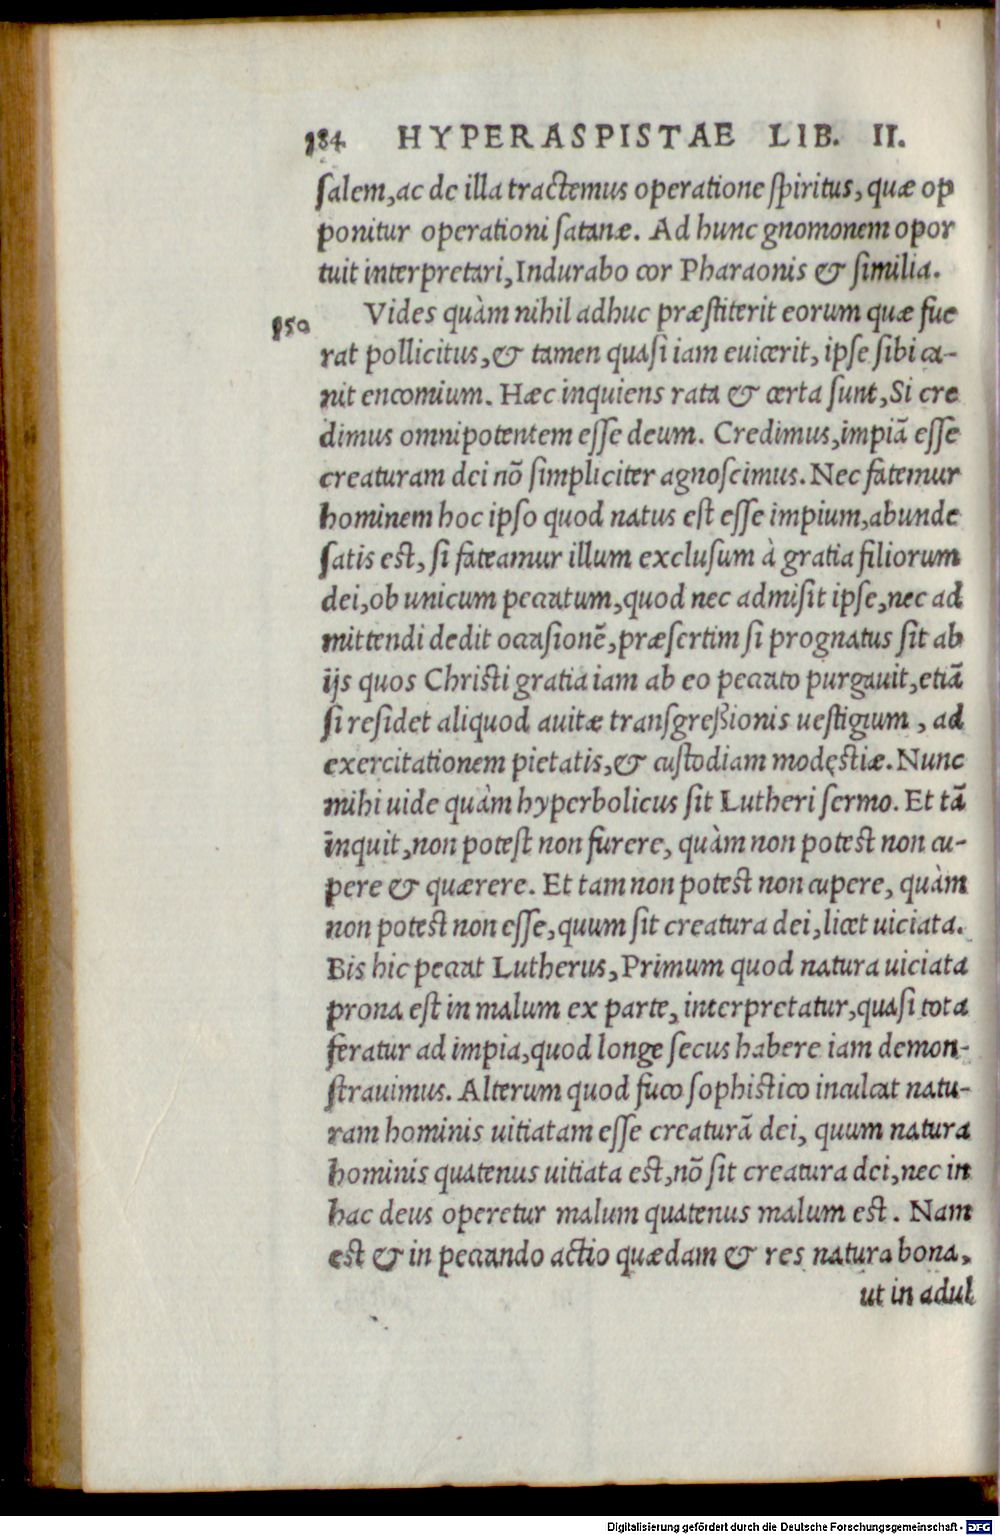 984 HYPERASPISTAE LIB. II.
salem, ac de illa tractemus operatione spiritus, quæ op
ponitur operationi satanæ. Ad hunc gnomonem opor
tuit interpretari, Indurabo cor Pharaonis & similia.
950 Vides quàm nihil adhuc præstiterit eorum quæ fue
rat pollicitus, & tamen quasi iam euicerit, ipse sibi ca-
nit encomium. Hæc inquiens rata & certa sunt, Si cre
dimus omnipotentem esse deum. Credimus, impiā esse
creaturam dei nō simpliciter agnoscimus. Nec fatemur
hominem hoc ipso quod natus est esse impium, abunde
satis est, si fateamur illum exclusum à gratia filiorum
dei, ob unicum peccatum, quod nec admisit ipse, nec ad
mittendi dedit occasionē, præsertim si prognatus sit ab
ijs quos Christi gratia iam ab eo peccato purgauit, etiā
si residet aliquod auitæ transgreßionis uestigium, ad
exercitationem pietatis, & custodiam modęstiæ. Nunc
mihi uide quàm hyperbolicus sit Lutheri sermo. Et tā
inquit, non potest non furere, quàm non potest non cu-
pere & quærere. Et tam non potest non cupere, quàm
non potest non esse, quum sit creatura dei, licet uiciata.
Bis hic peccat Lutherus, Primum quod natura uiciata
prona est in malum ex parte, interpretatur, quasi tota
feratur ad impia, quod longe secus habere iam demon-
strauimus. Alterum quod fuco sophistico inculcat natu-
ram hominis uitiatam esse creaturā dei, quum natura
hominis quatenus uitiata est, nō sit creatura dei, nec in
hac deus operetur malum quatenus malum est. Nam
est & in peccando actio quædam & res natura bona,
ut in adul
Digitalisierung gefördert durch die Deutsche Forschungsgemeinschaft - DFG